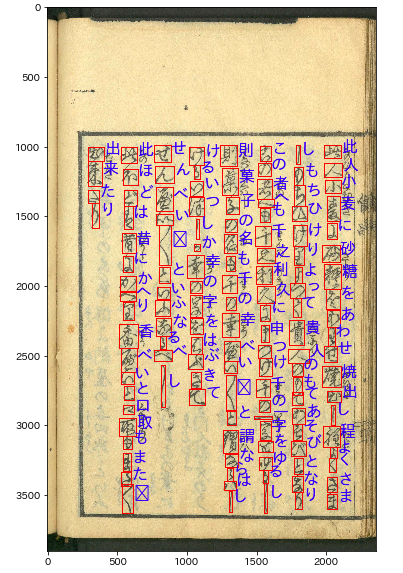 此人小麦に砂糖をあわせ焼出し程よくさま
しもちひけりよって貴人のもてあそびとなり
この者へも千之利久に申つけ千の字をゆるし
則菓子の名も千の幸べいと謂ならはし
けるいつしか幸の字をはぶきて
せんべいといふなるべし
此ほどは昔にかへり香べいと口取もまた
出来たり
0
500
1000
1500
2000
2500
3000
3500
0 500 1000 1500 2000